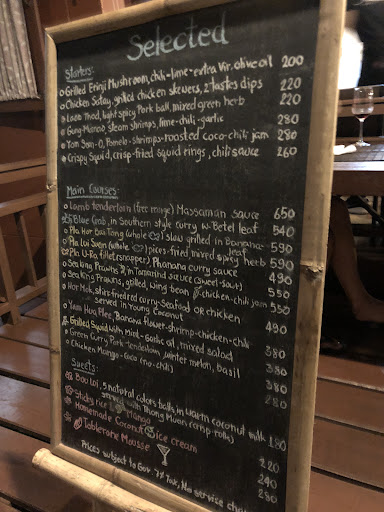 Selected
Starters:
Grilled Erinji Mushroom, chili-lime-extra Vir. olive oil 200
Chicken Satay, grilled chicken skewers, 2 tastes dips 220
Laab Thod, light spicy Pork ball, mixed green herb 220
Gung-Manao steam shrimps, lime-chili-garlic 280
Tam Som-O, Pomelo-shrimps-roasted coco-chili jam 280
Crispy Squid, crisp-fried squid rings, chili sauce 260
Main Courses:
Lamb tenderloin (free range) Massaman sauce 650
Blue Crab, in Southern style curry w-Betel leaf 540
Pla Hor Bai Tong (whole) slow grilled in Banana-leaf 590
Pla Lui Suan (whole) pices-fried mixed spicy herb 590
Pla U-Ra fillet (snapper) Phanang curry sauce 490
Seeking Prawns in Tamarind sauce (sweet-sour) 550
Seeking Prawns, grilled, wing bean chicken-chili jam 550
Hor Mok, stir-fried red curry-Seafood or chicken
served in Young Coconut 490
Yam Hua Plee, Banana flower-shrimp-chicken-chili 380
Grilled Squid with Mint-Garlic oil, mixed salad 380
Green Curry Pork-tenderloin, winter melon, basil 380
Chicken Mango-Coco (no-chili) 380
Sweets:
Bau Loi, 5 natural colors balls, in warm coconut milk 180
served with Thong Muan (crisp-rolls)
Sticky rice Mango 220
Homemade Coconut ice cream 240
Toblerone Mousse 280
Prices subject to Gov. 7% Tax, No service